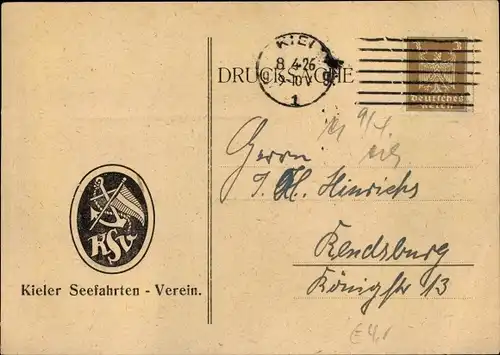 KIEL
8.4.26
9-10 V
1
3 3
Deutsches
Reich
DRUCKSACHE
9/4.
Herrn
J. H. Hinrichs
Rendsburg
Königstr 13
KSV
Kieler Seefahrten - Verein.